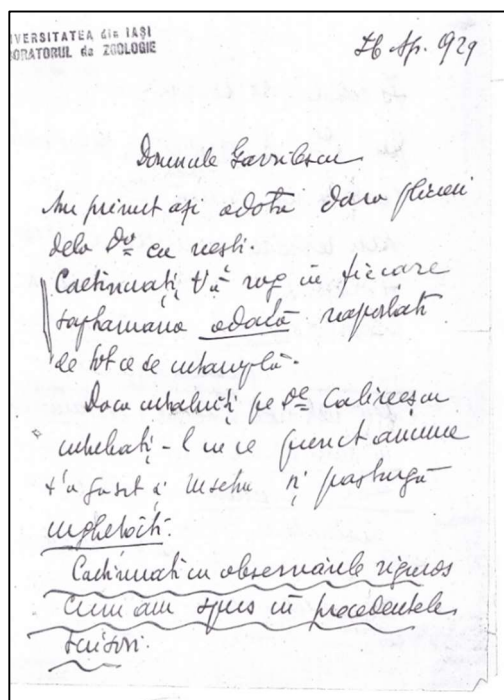 UNIVERSITATEA din IAŞI
LABORATORUL de ZOOLOGIE
26 Ap. 929
Domnule Gavrilescu
Am primit azi odată două plicuri
dela Dv cu vesti.
Continuați Vă rog în fiecare
saptamana odată raportati
de tot ce se intamplă.
Daca intalniți pe Dl Calinescu
intrebați-l in ce punct anume
s'a gasit și
inghețați.
Continuati cu observațiile riguros
cum am spus in precedentele
scrisori.